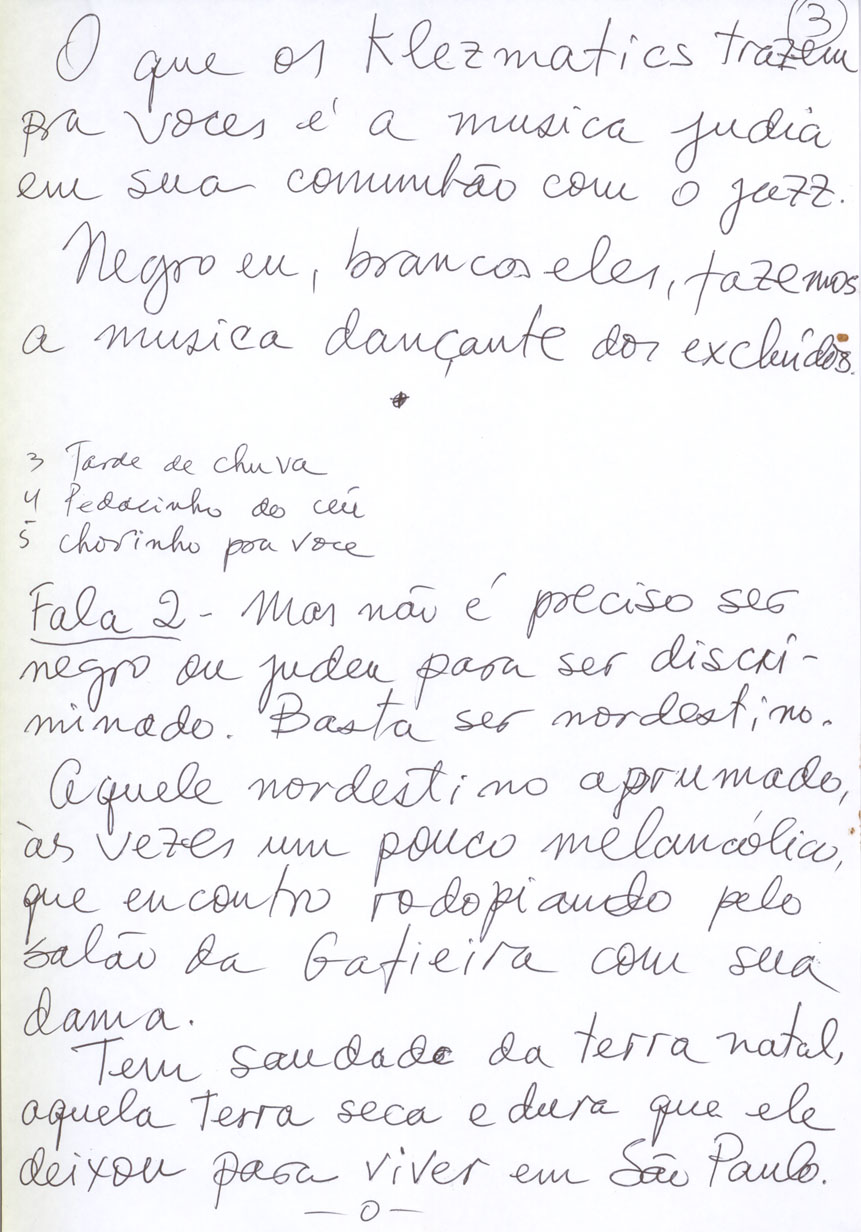 3
O que os Klezmatics trazem
pra voces é a musica judia
em sua comunhão com o jazz.
Negro eu, brancos eles, fazemos
a musica dançante dos excluídos.
3 Tarde de chuva
4 Pedacinho do céu
5 chorinho pra voce
Fala 2 - Mas não é preciso ser
negro ou judeu para ser discri-
minado. Basta ser nordestino.
Aquele nordestino aprumado,
às vezes um pouco melancólico,
que encontro rodopiando pelo
salão da Gafieira com sua
dama.
Tem saudade da terra natal,
aquela terra seca e dura que ele
deixou para viver em São Paulo.
—0—